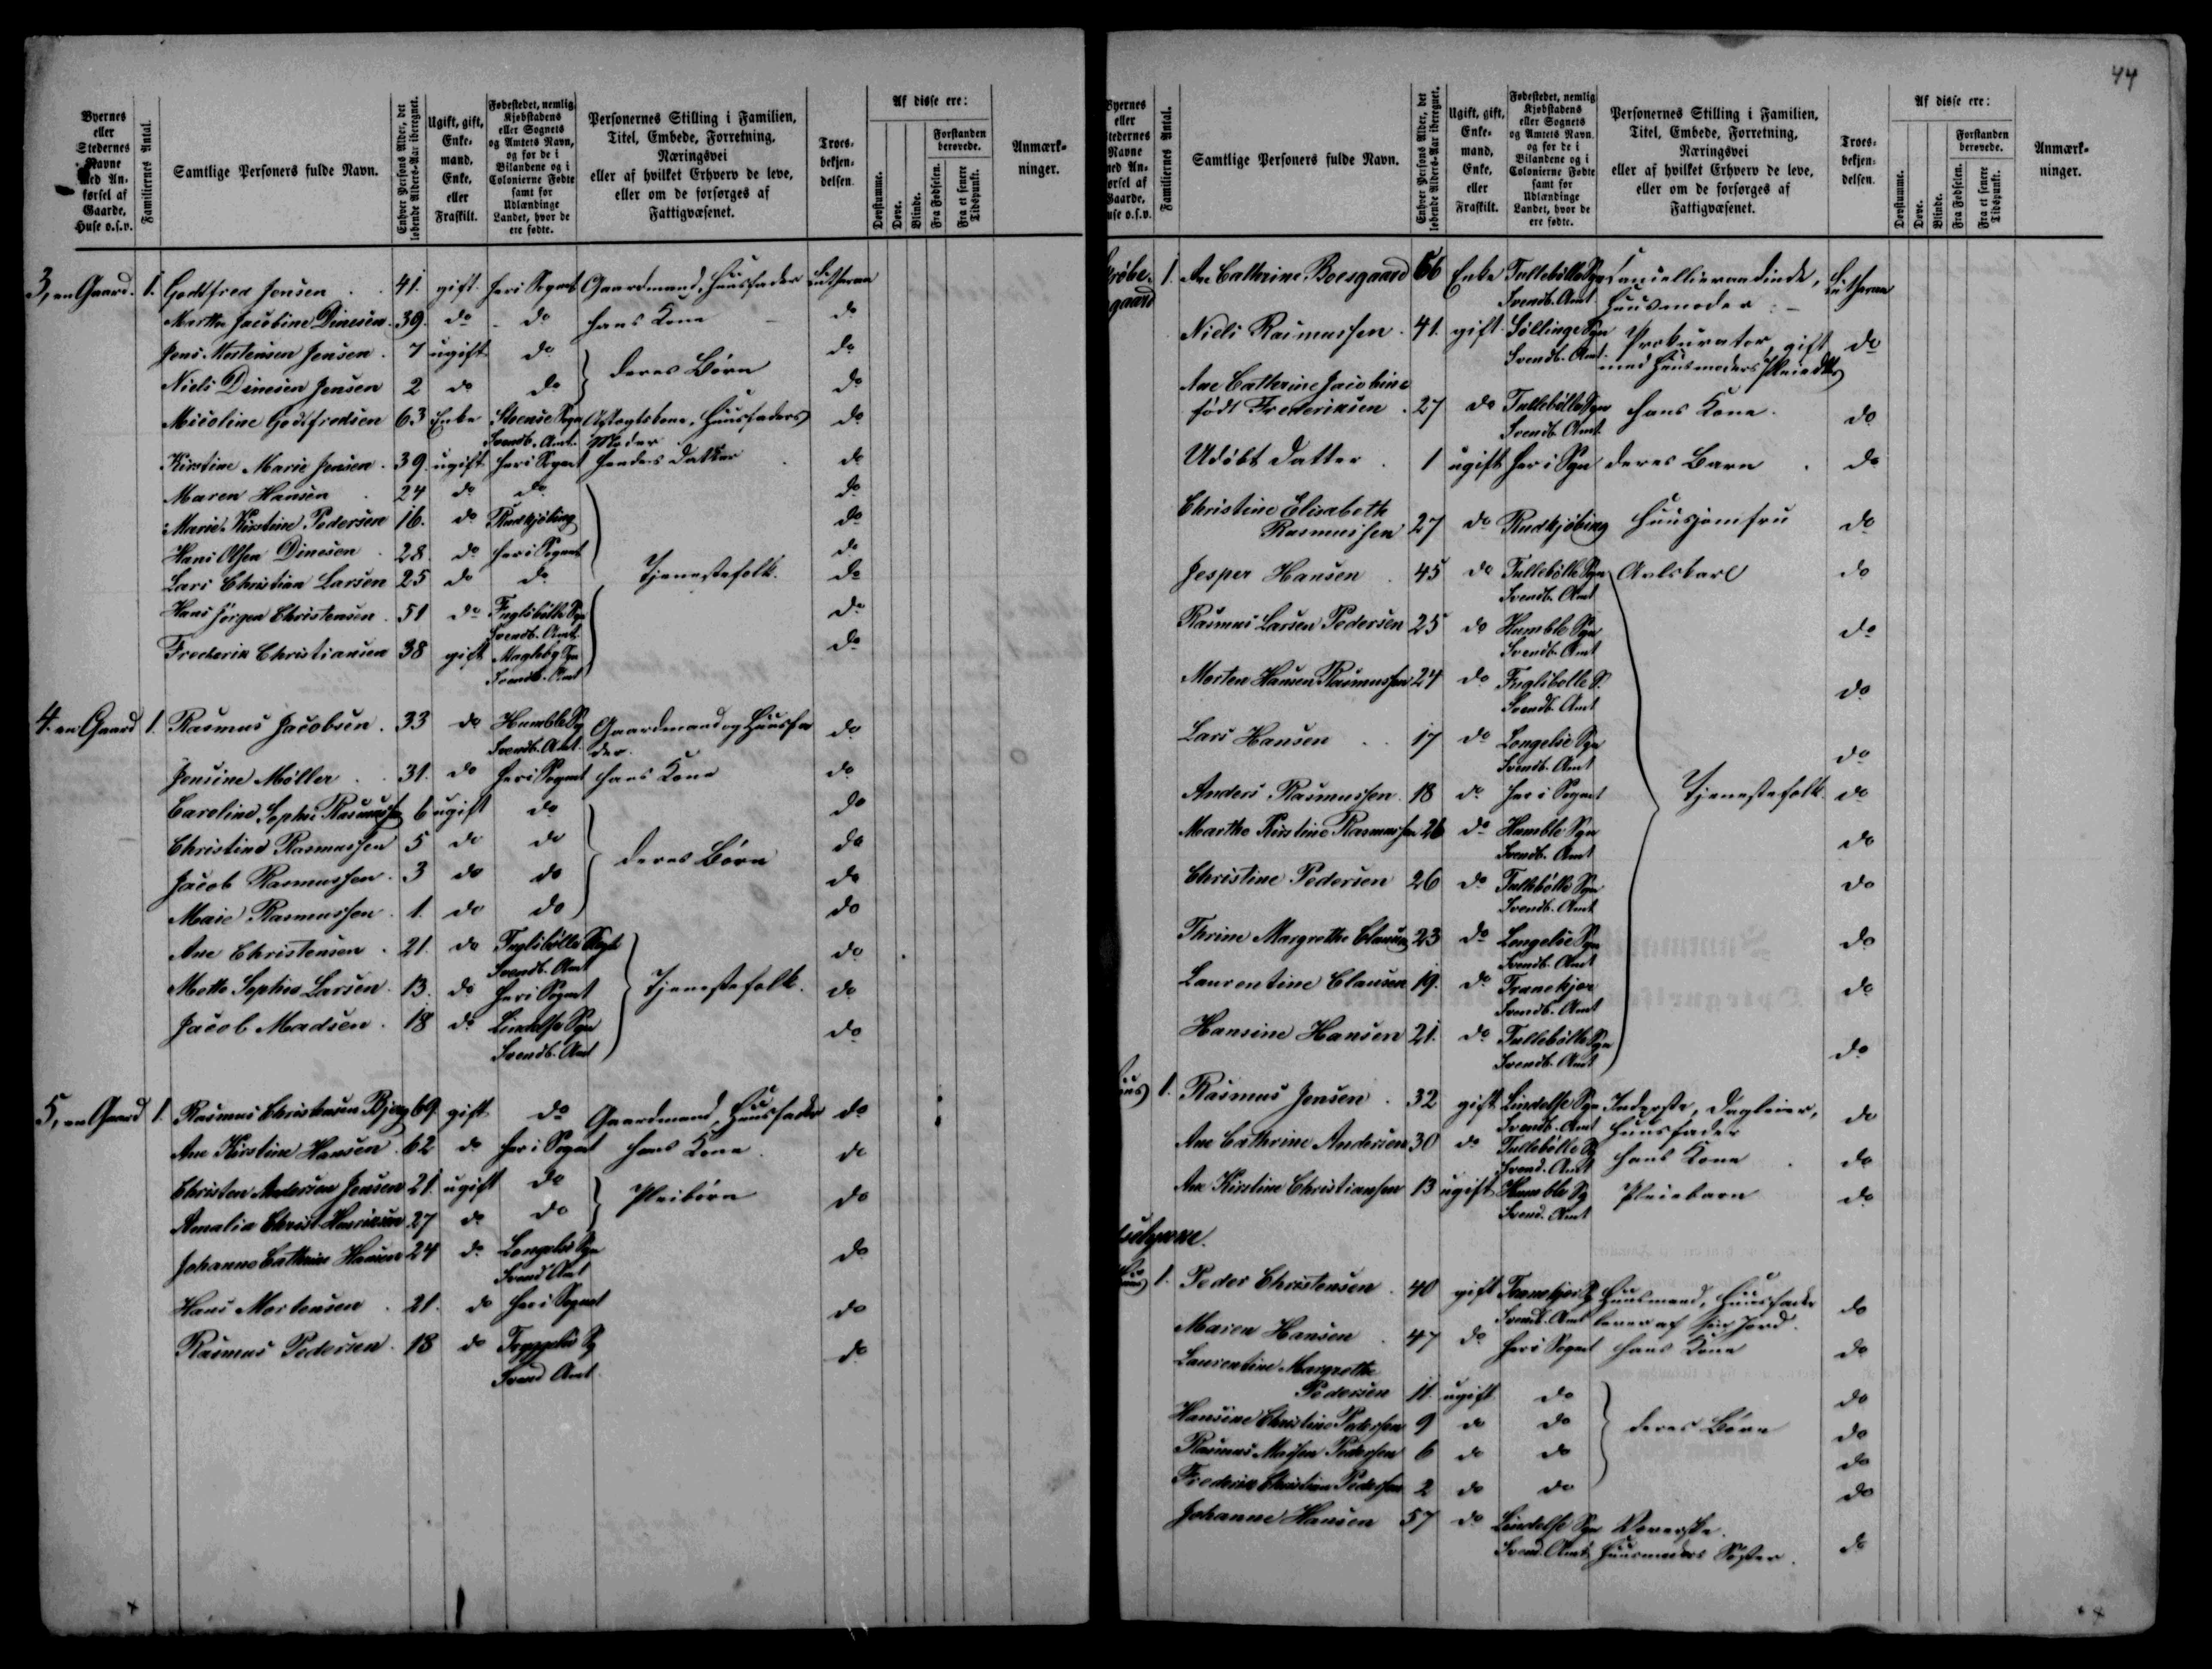 Byernes eller Stedernes Navne med Anførsel af Gaarde, Huse o.s.v.
Familiernes Antal.
Samtlige Personers fulde Navn.
Enhver Persons Alder, det løbende Alders-Aar iberegnet.
Ugift, gift, Enkemand, Enke, eller Fraskilt.
Fødestedet, nemlig Kjøbstadens eller Sognets og Amtets Navn, og for de i Bilandene og i Colonierne Fødte samt for Udlændinge Landet, hvor de ere fødte.
Personernes Stilling i Familien, Titel, Embede, Forretning, Næringsvei eller af hvilket Erhverv de leve, eller om de forsørges af Fattigvæsenet.
Troesbekjendelsen.
Af disse ere:
Døvstumme. Døve. Blinde.
Forstanden berøvede.
Fra Fødselen. Fra et senere Tidspunkt.
Anmærkninger.
3, en Gaard. 1. Godtfred Jensen 41. gift. her i Sognet Gaardmand, Huusfader Lutheran
Marthe Jacobine Dinesen 39. do do hans Kone do
Jens Mortensen Jensen 7 ugift do } deres Børn do
Niels Dinesen Jensen 2 do do do
Nicoline Godtfredsen 63 Enke Stoense Sogn Svendb. Amt. Aftægtskone, Huusfaders Moder do
Kirstine Marie Jensen 39. ugift her i Sognet hendes Datter do
Maren Hansen 24 do do do
Marie Kirstine Pedersen 16. do Rudkjøbing do
Hans Olsen Dinesen 28 do her i Sognet do
Lars Christian Larsen 25 do do Tjenestefolk. do
Hans Jørgen Christensen 51 do Fuglsbølle Sgn Svendb. Amt. do
Frederik Christiansen 38 gift Magleby Sgn Svendb. Amt do
4. en Gaard 1. Rasmus Jacobsen. 33 do Humble Sg Svendb. Amt. Gaardmand og Huusfader. do
Jensine Møller 31. do her i Sognet hans Kone do
Caroline Sophie Rasmussen 6 ugift do do
Christine Rasmussen 5 do do deres Børn do
Jacob Rasmussen 3 do do do
Marie Rasmussen 1. do do do
Ane Christensen 21. do Fuglsbølle Sogn Svendb. Amt do
Mette Sophie Larsen 13. do her i Sognet Tjenestefolk. do
Jacob Madsen 18 do Lindelse Sgn Svendb. Amt do
5, en Gaard 1. Rasmus Christensen Bjerg 69 gift do Gaardmand, Huusfader do
Ane Kirstine Hansen 62 do her i Sognet hans Kone. do
Christen Andersen Jensen 21. ugift do } Pleibørn do
Amalia Christ. Henriksen 27 do do
Johanne Cathrine Hansen 24 do Longelse Sgn Svend Amt do
Hans Mortensen 21. do her i Sognet do
Rasmus Pedersen. 18 do Tryggelev Sg Svend Amt do
44
Byernes eller Stedernes Navne med Anførsel af Gaarde, Huse o.s.v.
Familiernes Antal.
Samtlige Personers fulde Navn.
Enhver Persons Alder, det løbende Alders-Aar iberegnet.
Ugift, gift, Enkemand, Enke, eller Fraskilt.
Fødestedet, nemlig Kjøbstadens eller Sognets og Amtets Navn, og for de i Bilandene og i Colonierne Fødte samt for Udlændinge Landet, hvor de ere fødte.
Personernes Stilling i Familien, Titel, Embede, Forretning, Næringsvei eller af hvilket Erhverv de leve, eller om de forsørges af Fattigvæsenet.
Troesbekjendelsen.
Af disse ere:
Døvstumme. Døve. Blinde.
Forstanden berøvede.
Fra Fødselen. Fra et senere Tidspunkt.
Anmærkninger.
gaard 1. Ane Cathrine Boesgaard 66 Enke Tullebølle Sgn Svendb. Amt Cancellieraadinde, Huusmoder Lutheran
Niels Rasmussen 41. gift Søllinge Sgn Svendb. Amt. Prokurator, gift med Huusmoders Pleiedtr do
Ane Cathrine Jacobine
født Frederiksen 27 do Tullebølle Sgn Svendb. Amt hans Kone. do
Udøbt Datter 1 ugift her i Sgn deres Barn do
Christine Elisabeth
Rasmussen 27 do Rudkjøbing Huusjomfru do
Jesper Hansen 45 do Tullebølle Sgn Svendb. Amt Avlskarl do
Rasmus Larsen Pedersen 25 do Humble Sgn Svendb. Amt do
Morten Hansen Rasmussen 24 do Fuglsbolle S. Svendb. Amt do
Lars Hansen 17 do Longelse Sgn Svendb. Amt do
Anders Rasmussen 18 do her i Sognet Tjenestefolk. do
Marthe Kirstine Rasmussen 26 do Humble Sgn Svendb. Amt do
Christine Pedersen 26 do Tullebølle Sgn Svendb. Amt do
Thrine Margrethe Clausen 23 do Longelse Sgn Svendb. Amt do
Laurentine Clausen 19. do Tranekjær Svendb. Amt do
Hansine Hansen 21. do Tullebølle Sgn Svendb. Amt do
1. Rasmus Jensen 32 gift Lindelse Sgn Svendb. Amt Inderste, Dagleier, Huusfader do
Ane Cathrine Andersen 30 do Tullebølle Sg Svend. Amt hans Kone do
Ane Kirstine Christiansen 13 ugift Humble Sg Svend. Amt Pleiebarn do
1. Peder Christensen 40 gift Tranekjær Sg Svendb. Amt Huusmand, Huusfader lever af sin Jord. do
Maren Hansen 47 do her i Sognet hans Kone do
Laurentine Margrethe
Pedersen 11. ugift do do
Hansine Christine Pedersen 9 do do deres Børn do
Rasmus Madsen Pedersen 6 do do do
Frederik Christian Pedersen 2 do do do
Johanne Hansen 57 do Lindelse Sgn Svend. Amt Væverske. Huusmoders Søster. do